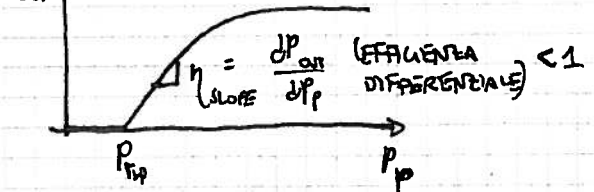 η_SLOPE = dP_out / dP_p (EFFICIENZA DIFFERENZIALE) < 1
P_thp P_p